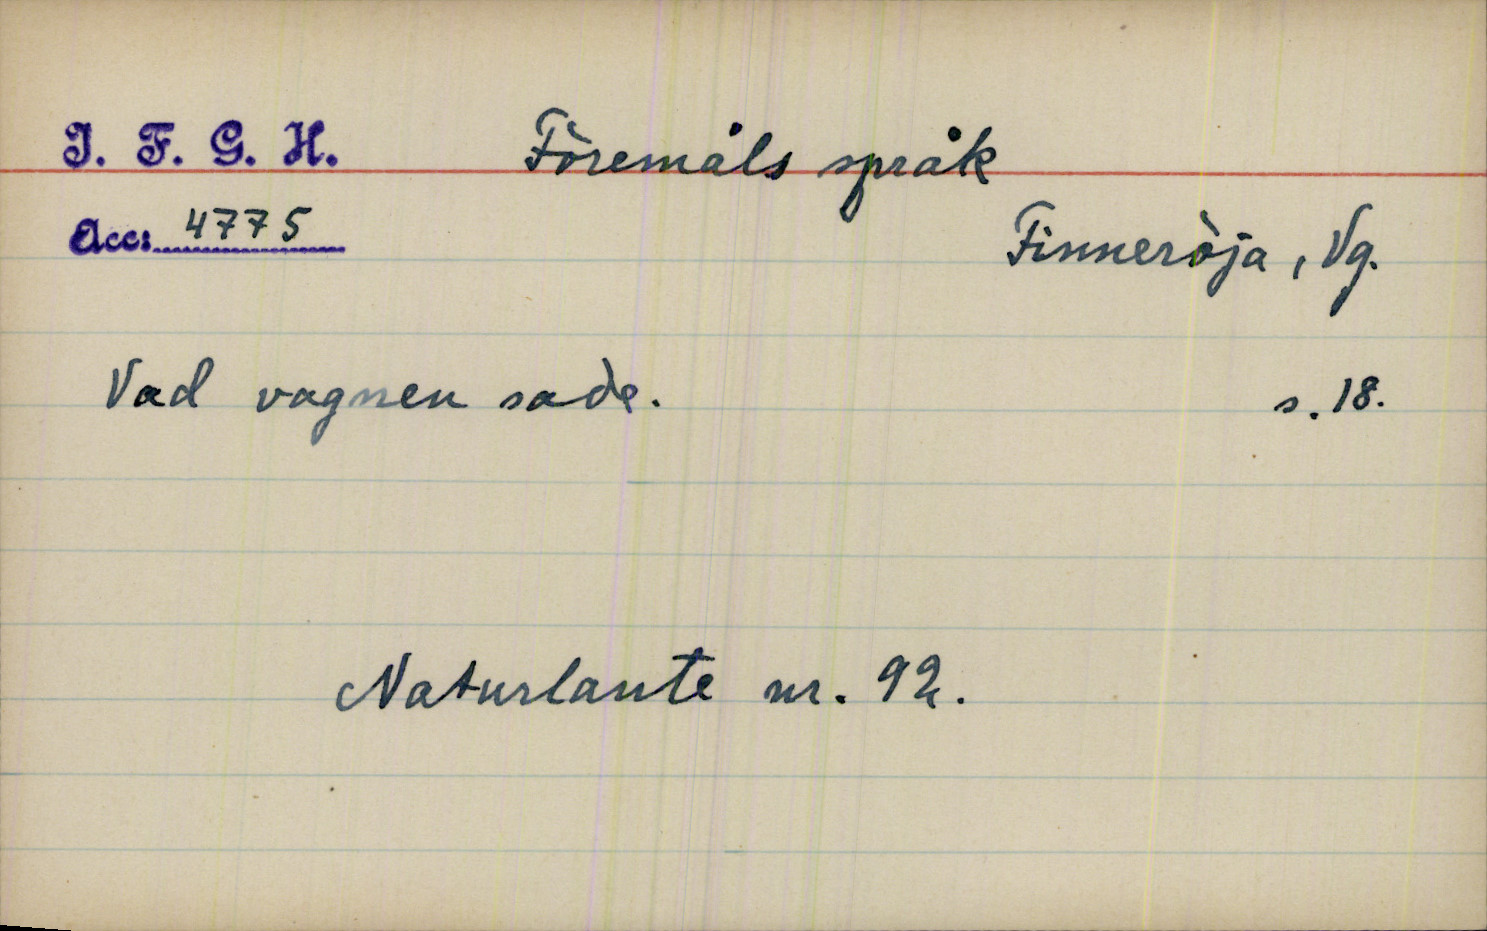 I. F. G. H. Föremåls språk
Acc: 4775
Finneröja, Vg.
Vad vagnen sade. s. 18.
Naturlaute nr. 92.